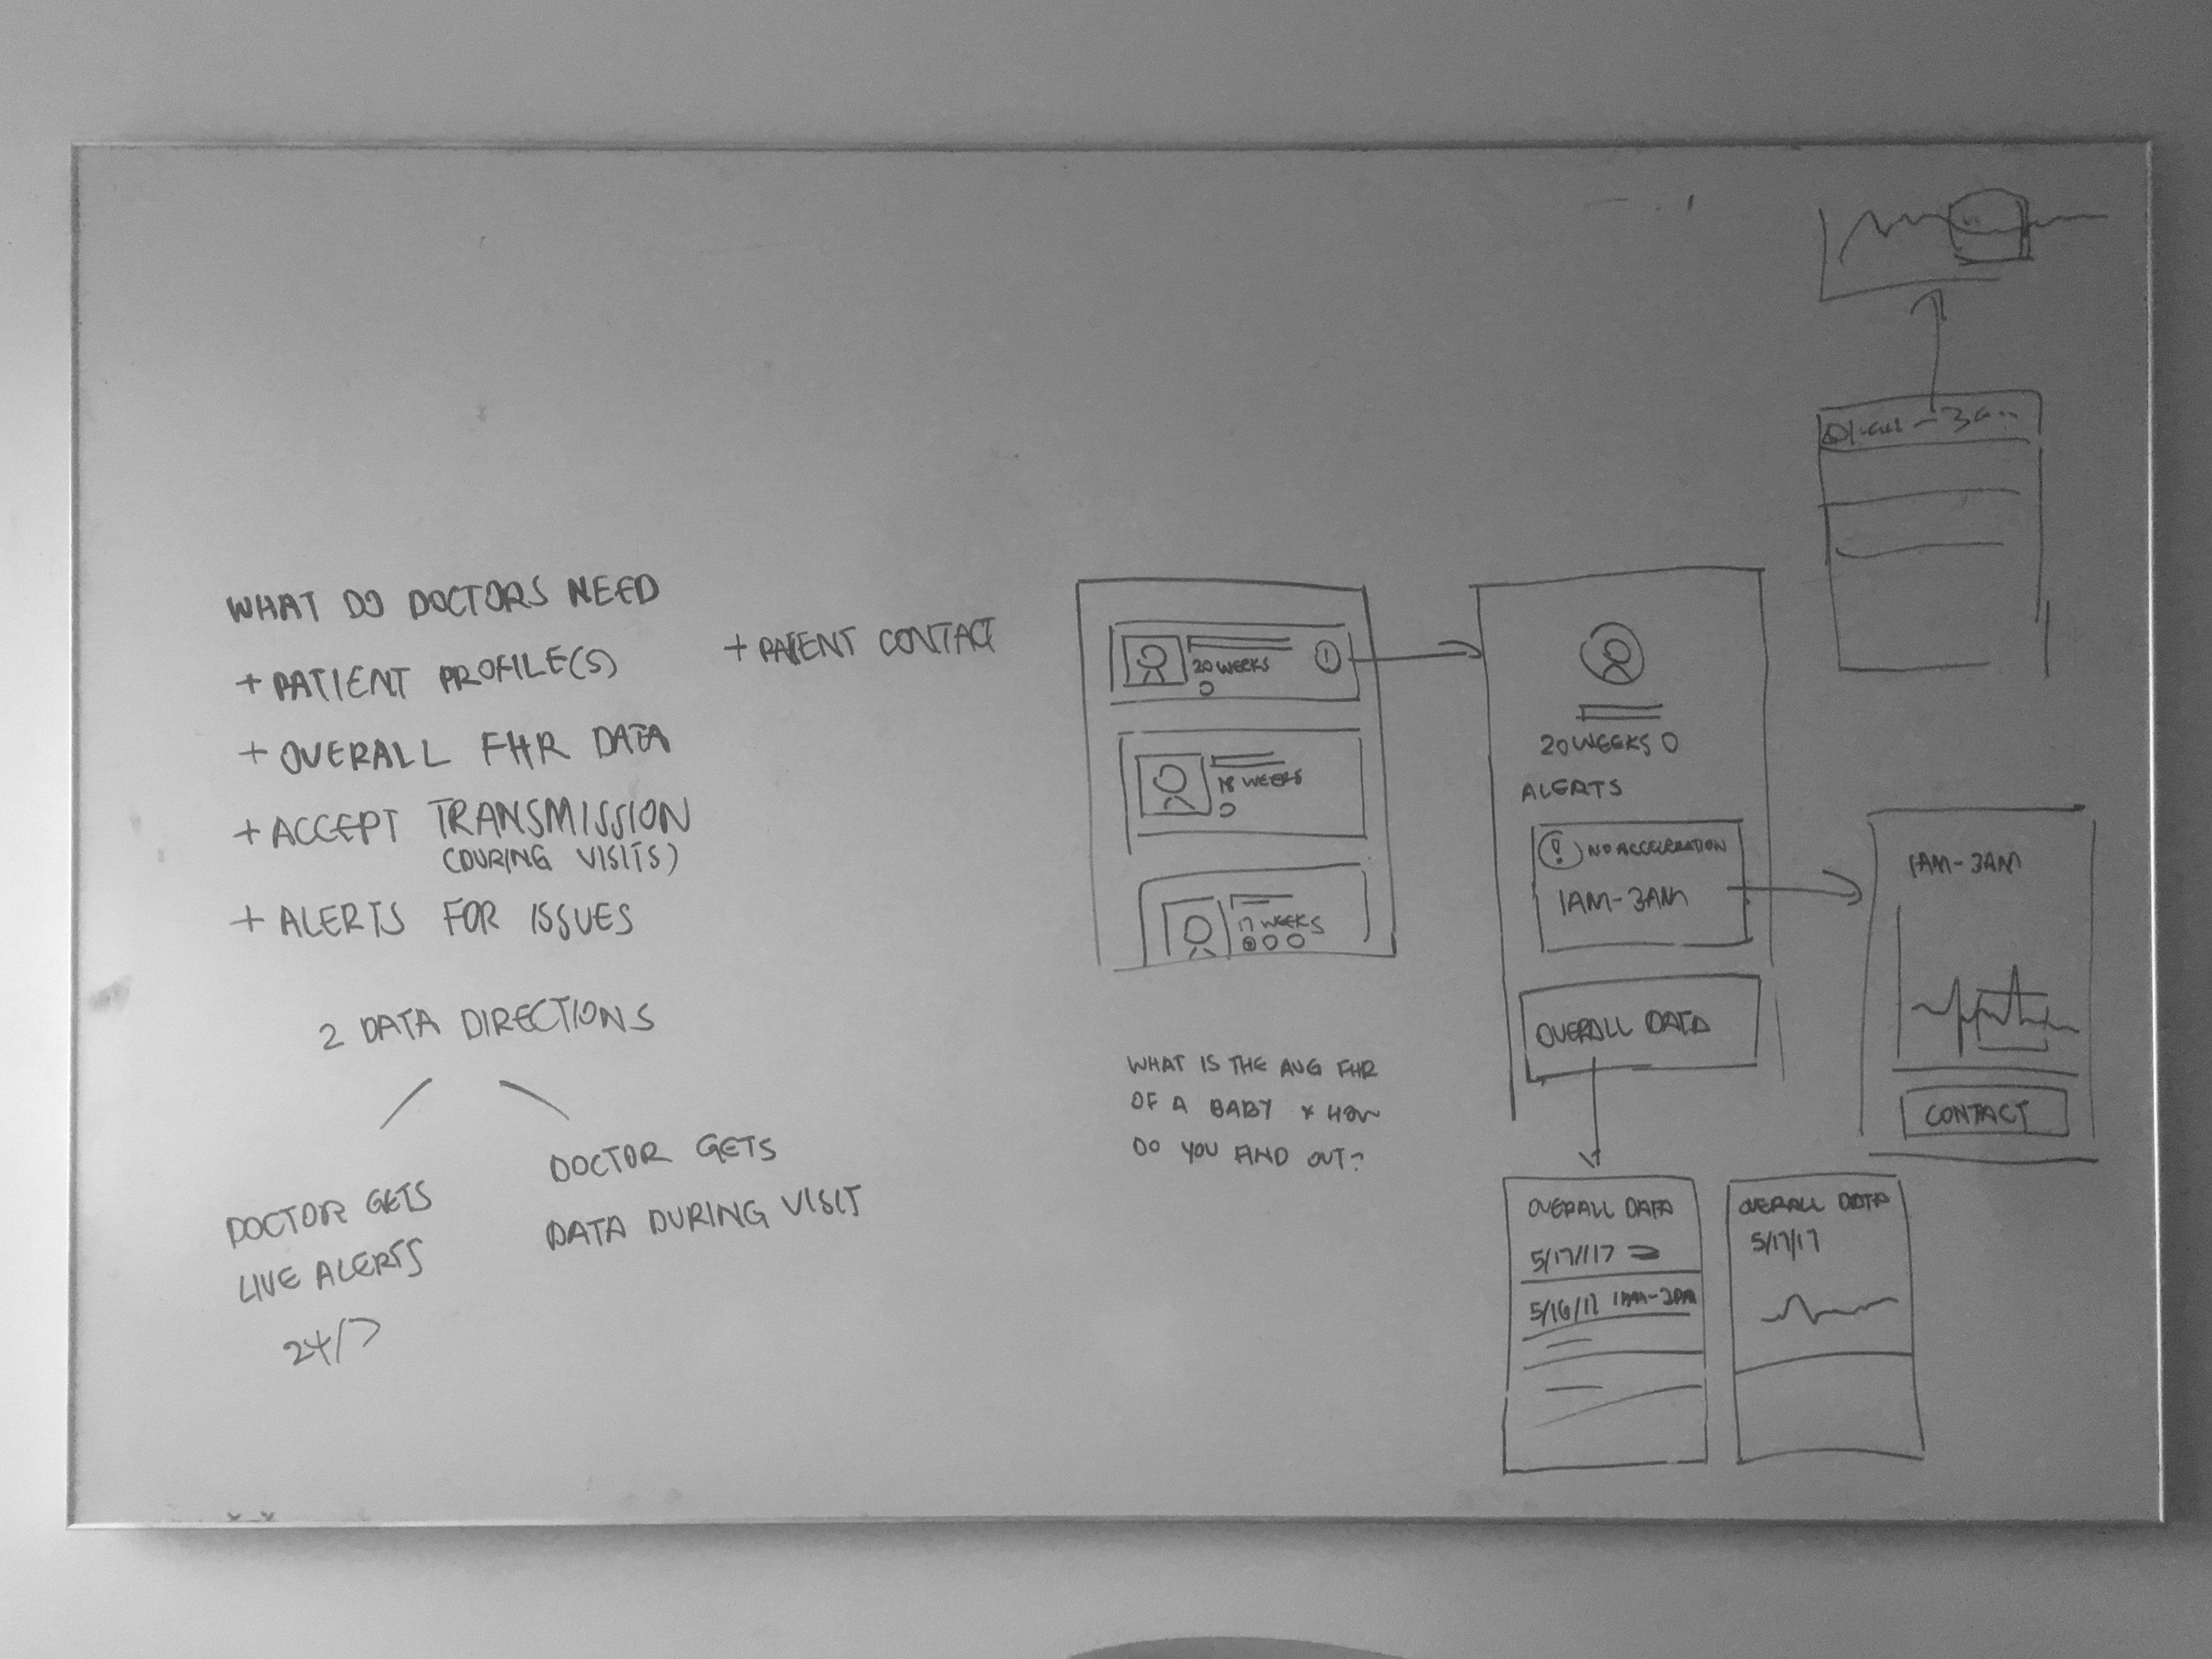 WHAT DO DOCTORS NEED
+ PATIENT PROFILE(S)
+ PATIENT CONTACT
+ OVERALL FHR DATA
+ ACCEPT TRANSMISSION
(DURING VISITS)
+ ALERTS FOR ISSUES
2 DATA DIRECTIONS
DOCTOR GETS
LIVE ALERTS
24/7
DOCTOR GETS
DATA DURING VISIT
20 WEEKS
!
18 WEEKS
17 WEEKS
WHAT IS THE AVG FHR
OF A BABY & HOW
DO YOU FIND OUT?
20 WEEKS
ALERTS
! NO ACCELERATION
1AM-3AM
OVERALL DATA
1AM-3AM
CONTACT
OVERALL DATA
5/17/17
5/16/17
OVERALL DATA
5/17/17